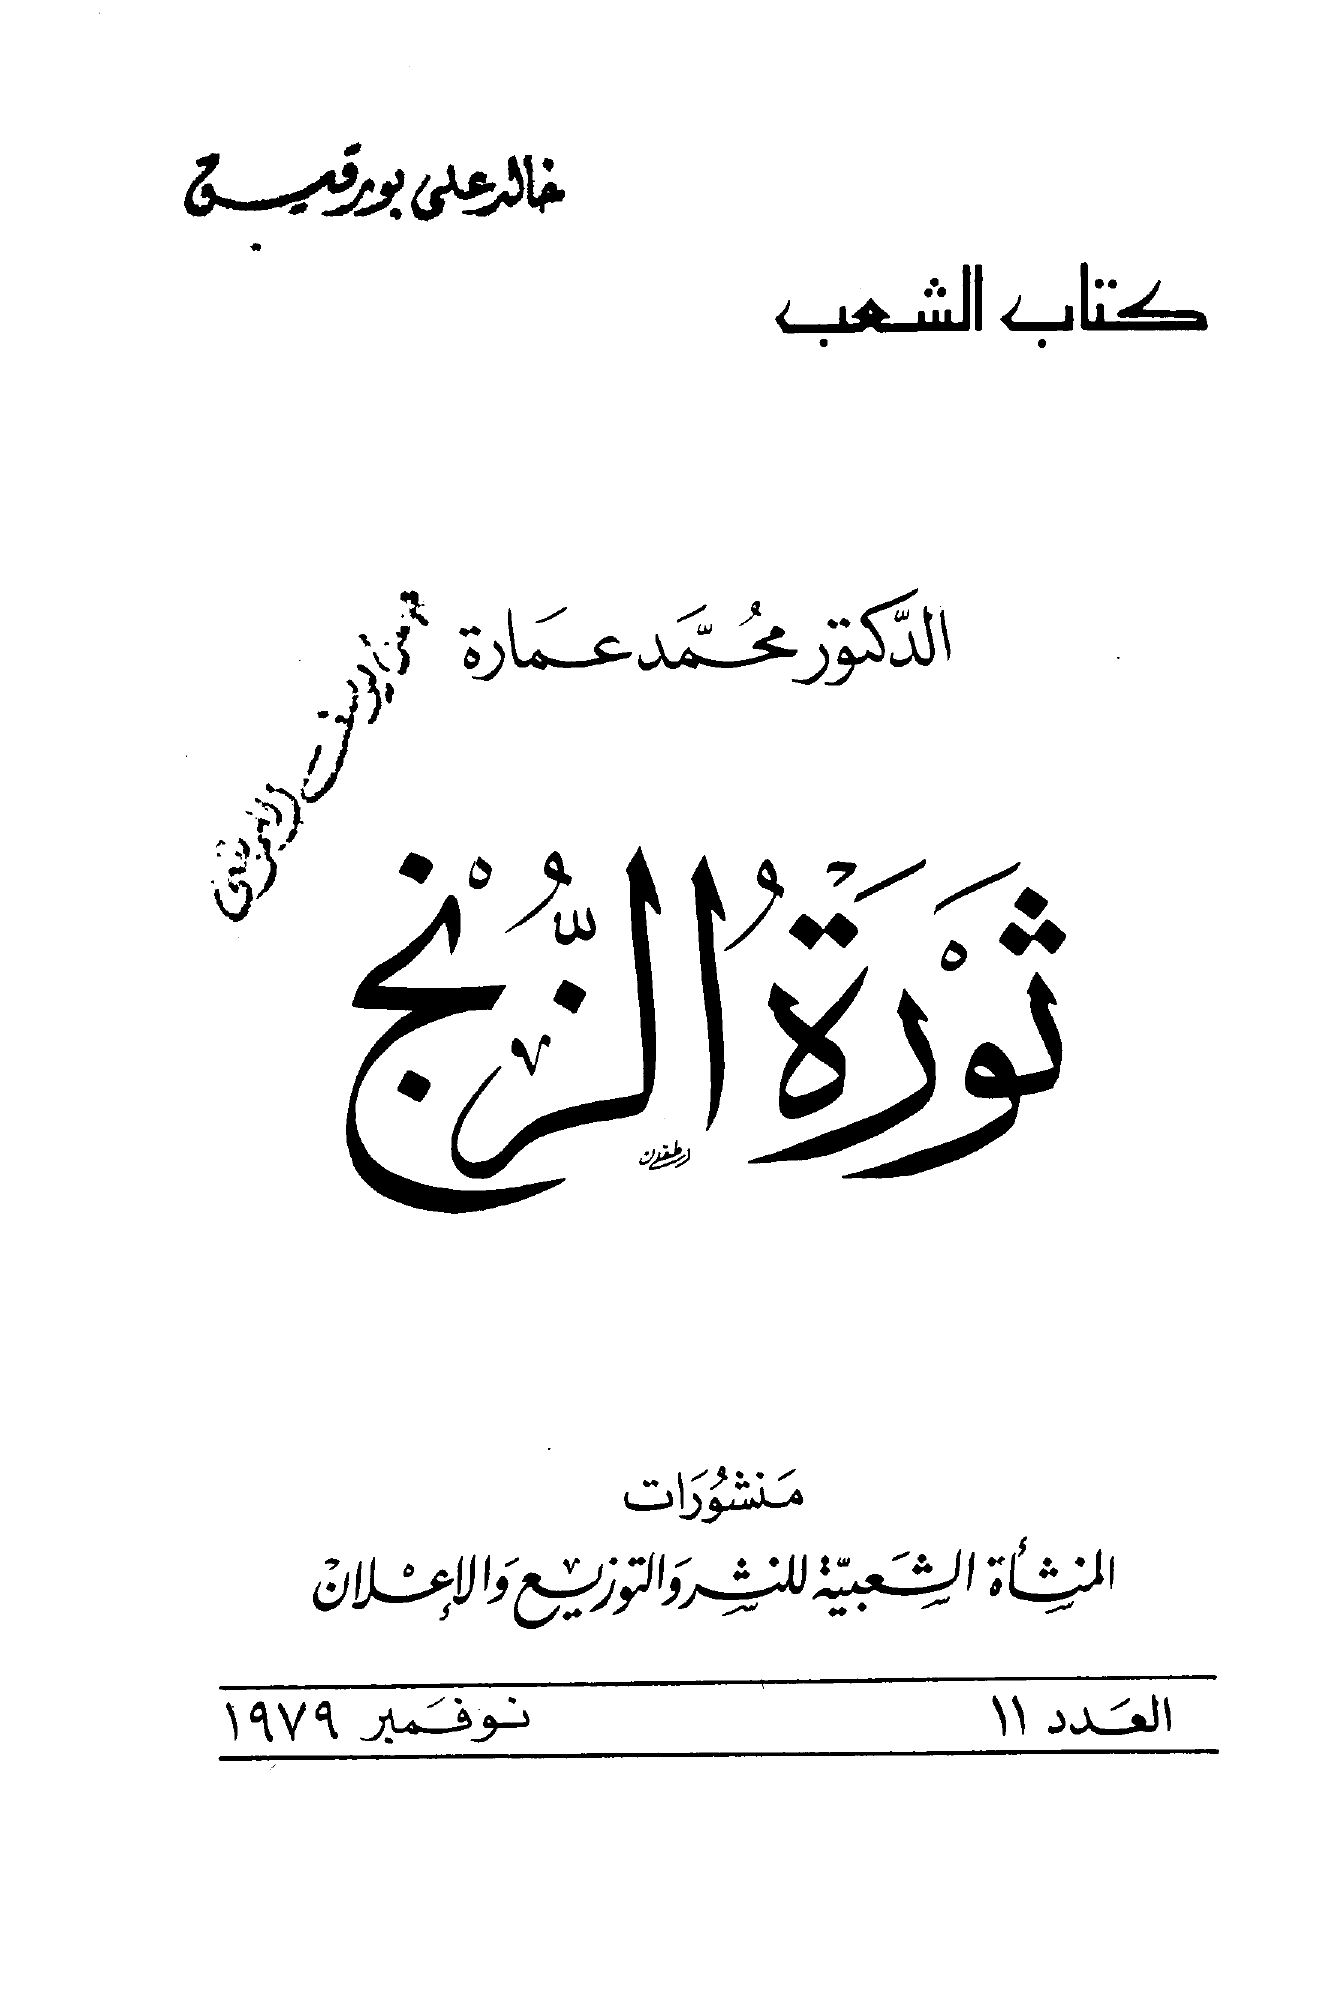 خالد علي بورقيبة
كتاب الشعب
الدَّكتور محُمَّد عمارة
ثَوْرَةُ الزُّنْجِ
مَنشُورَات
المنشأة الشَّعبيَّة للنشر وَالتوزيْع وَالإعْلانْ
العَدد ١١
نوفَمبر ١٩٧٩